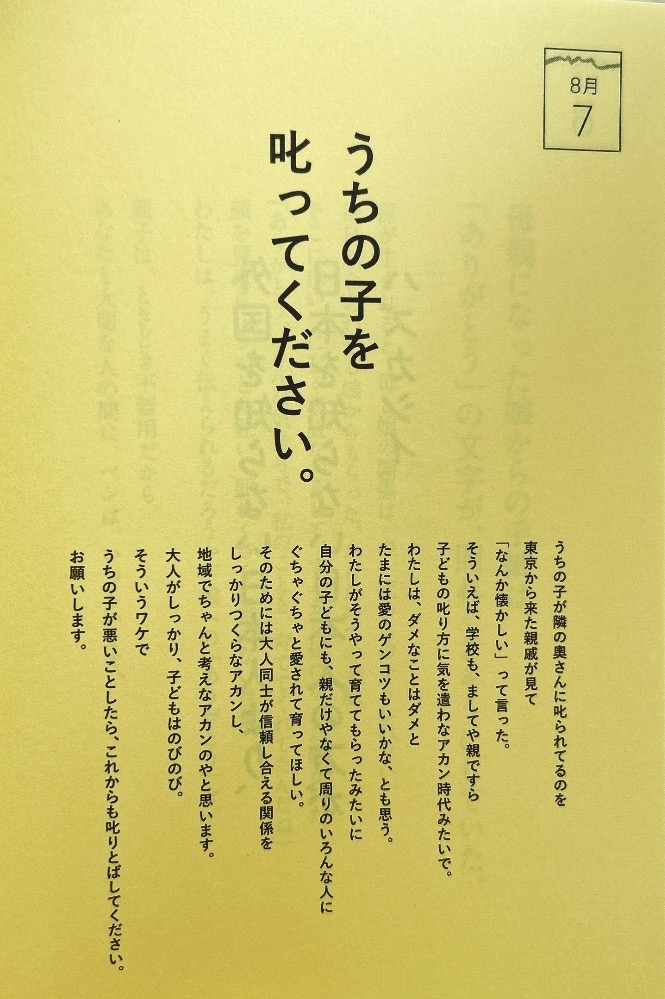 8月
7
うちの子を
叱ってください。
うちの子が隣の奥さんに叱られてるのを
東京から来た親戚が見て
「なんか懐かしい」って言った。
そういえば、学校も、ましてや親ですら
子どもの叱り方に気を遣わなアカン時代みたいで。
わたしは、ダメなことはダメと
たまには愛のゲンコツもいいかな、とも思う。
わたしがそうやって育ててもらったみたいに
自分の子どもにも、親だけやなくて周りのいろんな人に
ぐちゃぐちゃと愛されて育ってほしい。
そのためには大人同士が信頼し合える関係を
しっかりつくらなアカンし、
地域でちゃんと考えなアカンのやと思います。
大人がしっかり、子どもはのびのび。
そういうワケで
うちの子が悪いことしたら、これからも叱りとばしてください。
お願いします。